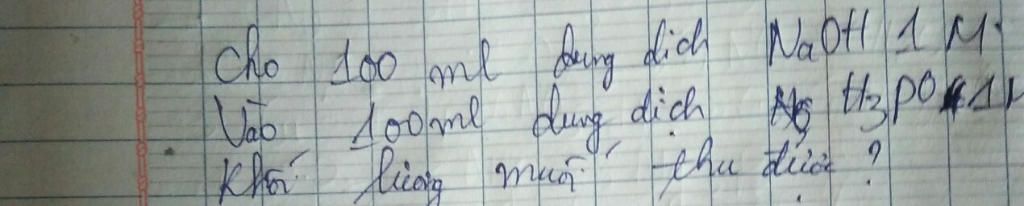 Cho 100 ml dung dịch NaOH 1 M.
Vào 100ml dung dịch H3PO4 1M
Khối lượng muối thu được ?